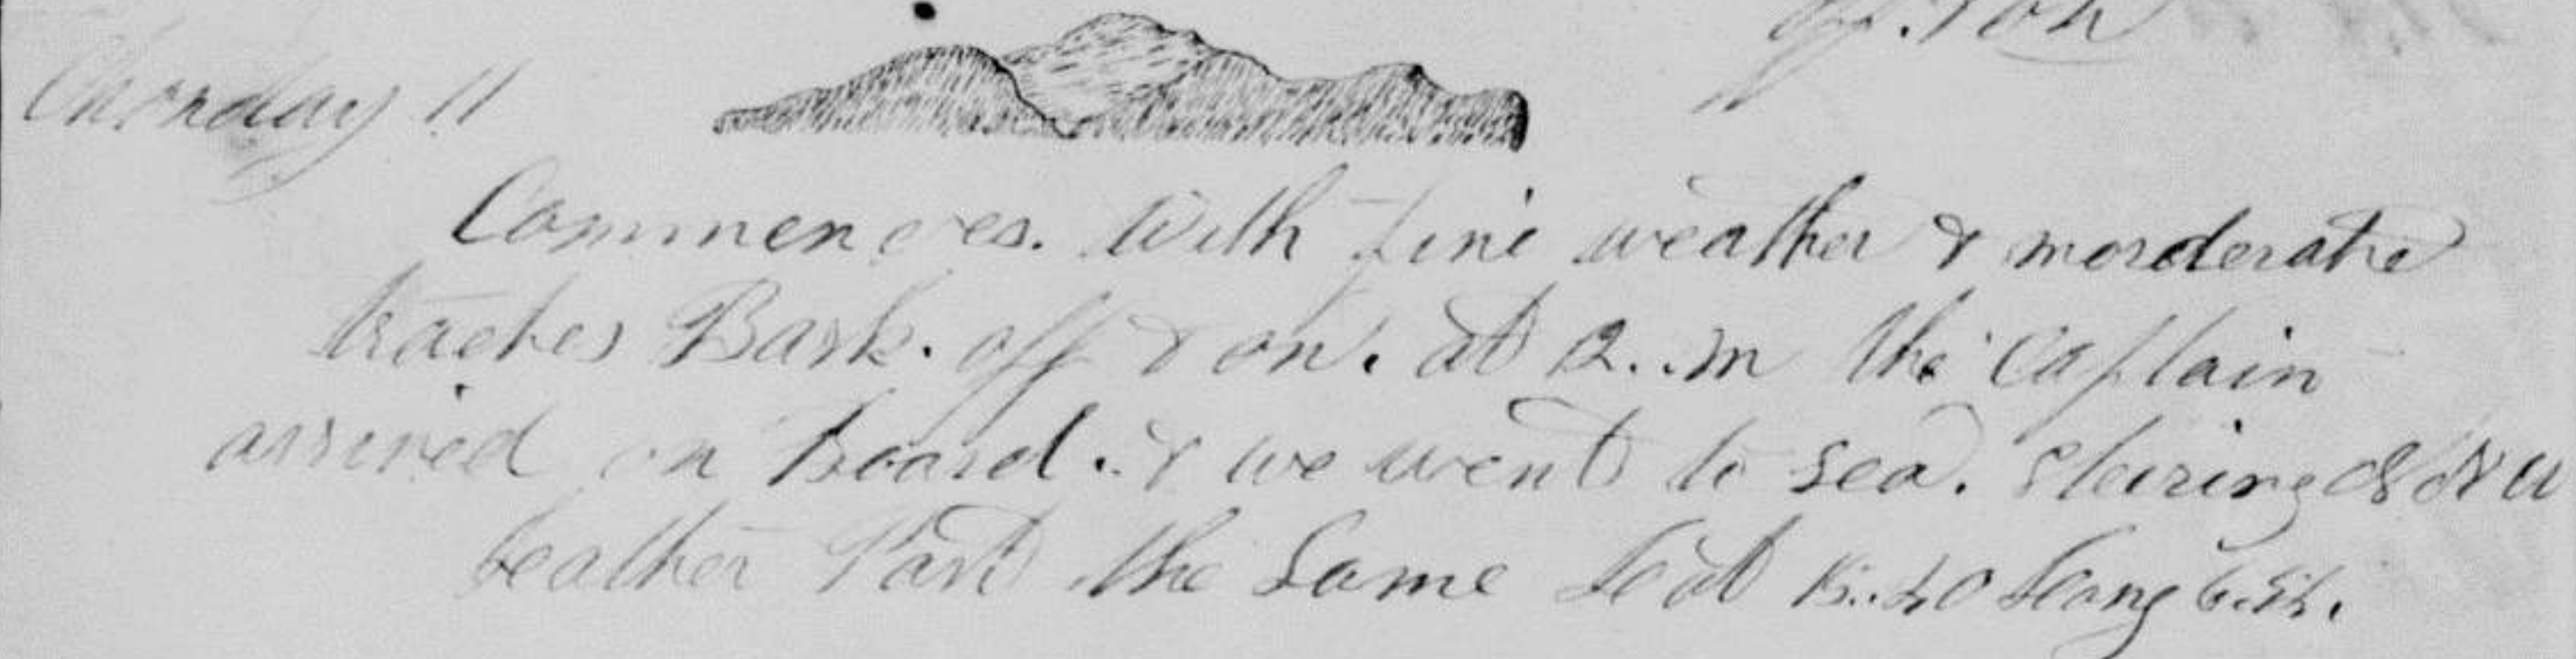 Monday 11
Commences. With fine weather & morderate
traches Bark. off & on. at 12. m the Captain
arrived on Board. & we went to sea. steiring
Leather Part the Same Lat 15..40 Long